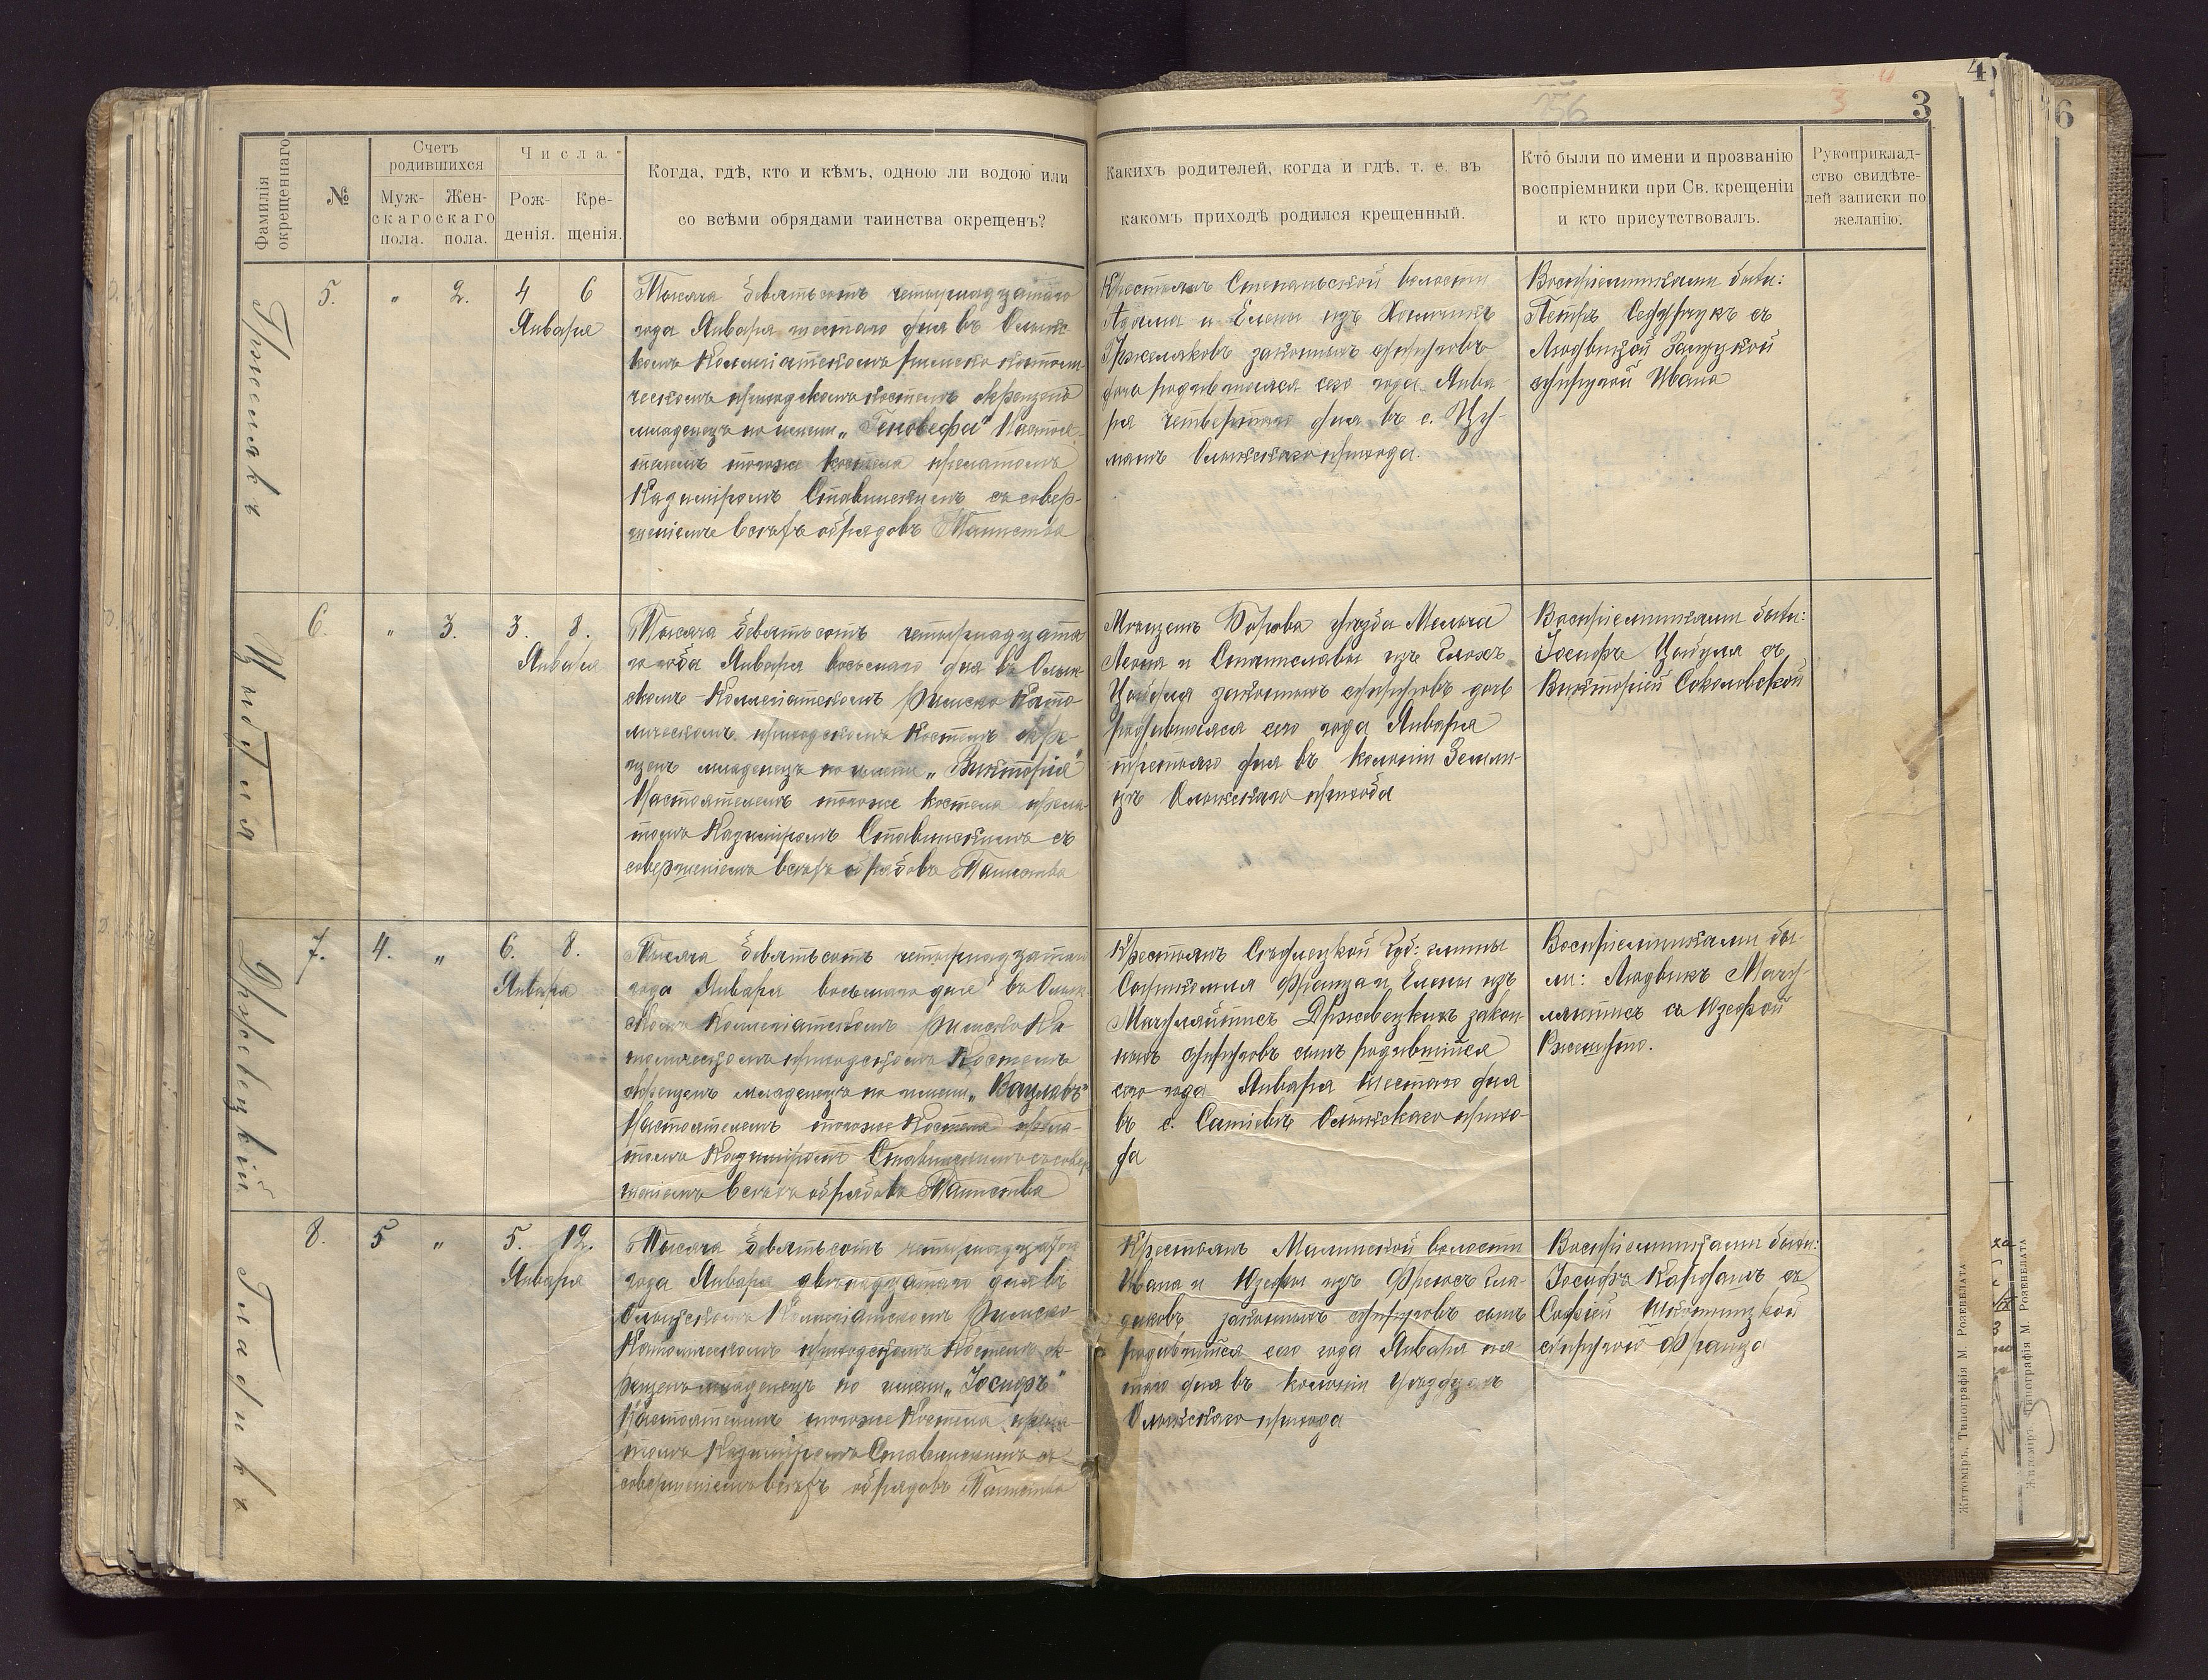 3
Фамилія окрещеннаго
№
Счетъ родившихся
Мужскаго пола.
Женскаго пола.
Числа.
Рожденія.
Крещенія.
Когда, гдѣ, кто и кѣмъ, одною ли водою или
со всѣми обрядами таинства окрещенъ?
Каихъ родителей, когда и гдѣ, т. е. въ
какомъ приходѣ родился крещенный.
Кто были по имени и прозванію
воспріемники при Св. крещеніи
и кто присутствовалъ.
Рукоприклад-
ство свидѣте-
лей записки по
желанію.
5. " 2. 4 6
Января
Тысяча девятьсотъ четырнадцатаго
года Января шестаго дня въ Олыкс
комъ Коллегіатскомъ римско католи
ческомъ приходскомъ костелѣ окрещенъ
младенецъ по имени „Геновефа" Настоя-
телемъ тогоже костела прелатомъ
Казиміромъ Ставинскимъ съ совер-
шеніемъ всѣхъ обрядовъ Таинства
Крестьянъ Степаньской волости
Адама и Елены изъ
законныхъ супруговъ
дочь родившаяся сего года Янва-
ря четвертаго дня въ с.
Олыкскаго прихода.
Воспріемниками были:
Петръ съ
Людвикой
супругой Ивана
6. " 3. 3. 8.
Января
Цибуля
Тысяча девятьсотъ четырнадцата
го года Января восьмаго дня въ Олык-
скомъ Коллегіатскомъ Римско Като-
лическомъ приходскомъ Костелѣ окре-
щенъ младенецъ по имени „Викторія"
Настоятелемъ тогоже костела прела-
томъ Казиміромъ Ставинскимъ съ
совершеніемъ всѣхъ обрядовъ Таинства
Леона и Станиславы изъ
законныхъ супруговъ дочь
родившаяся сего года Января
третьяго дня въ колоніи Земли-
цѣ Олыкскаго прихода
Воспріемниками были:
Іосифъ Цибуля съ
Викторіей Соколовской
7. 4. " 6. 8.
Января
Држевецкій
Тысяча девятьсотъ четырнадцатаго
года Января восьмаго дня въ Олык-
скомъ Коллегіатскомъ Римско Ка-
толическомъ приходскомъ Костелѣ
окрещенъ младенецъ по имени „Вацлавъ"
Настоятелемъ тогоже Костела прела-
томъ Казиміромъ Ставинскимъ съ совер
шеніемъ всѣхъ обрядовъ Таинства
Крестьянъ Сѣдлецкой Губ: гмины
Франца и Елены изъ
Држевецкихъ закон-
ныхъ супруговъ сынъ родившійся
сего года Января шестаго дня
въ с. Олыкскаго прихо-
да
Воспріемниками бы-
ли: Людвикъ
съ Юзефой
8. 5 " 5. 12.
Января
Гладикъ
Тысяча девятьсотъ четырнадцатаго
года Января двѣнадцатаго дня въ
Олыкскомъ Коллегіатскомъ Римско
Католическомъ приходскомъ Костелѣ ок-
рещенъ младенецъ по имени „Іосифъ"
Настоятелемъ тогоже Костела прела-
томъ Казиміромъ Ставинскимъ съ
совершеніемъ всѣхъ обрядовъ Таинства
Крестьянъ Малинской волости
Ивана и Юзефы изъ Гла-
диковъ законныхъ супруговъ сынъ
родившійся сего года Января пя-
таго дня въ колоніи
Олыкскаго прихода
Воспріемниками были:
Іосифъ съ
Софіей
супругой Франца
Житоміръ, Типографія М. Розенблата